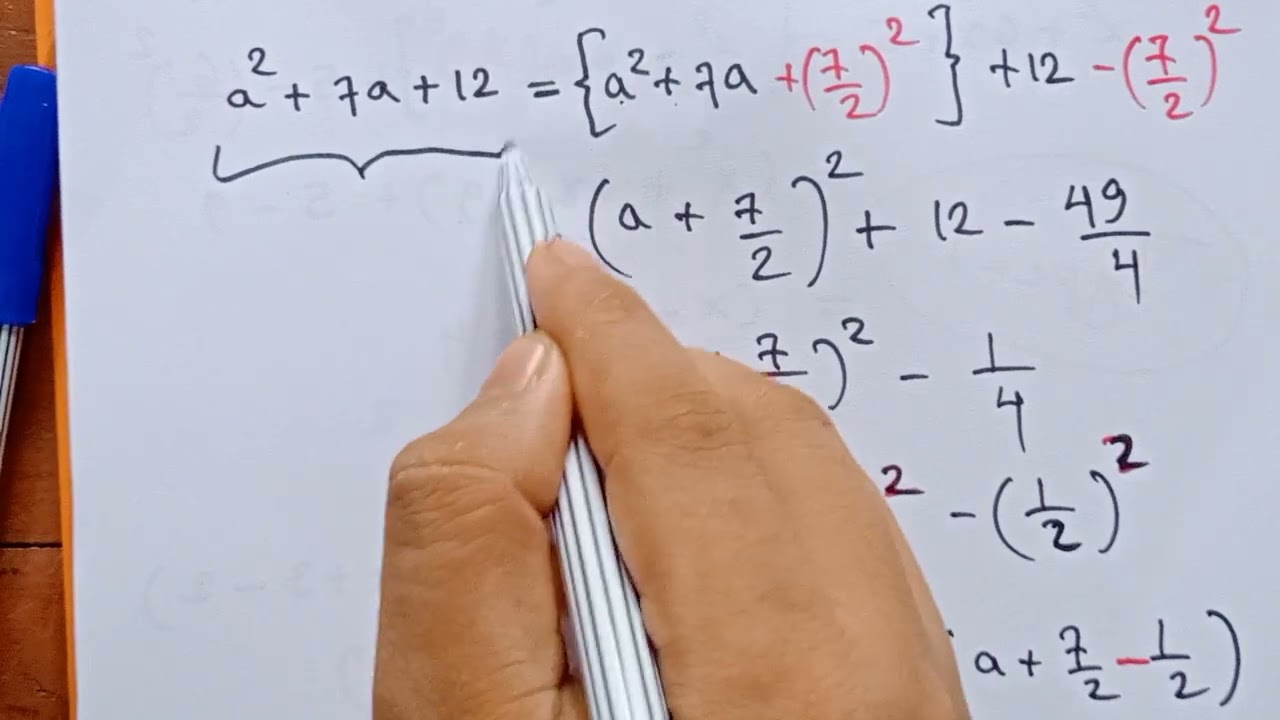 a² + 7a + 12 = {a² + 7a + (7/2)²} + 12 - (7/2)²
(a + 7/2)² + 12 - 49/4
7/ )² - 1/4
² - (1/2)²
a + 7/2 - 1/2)